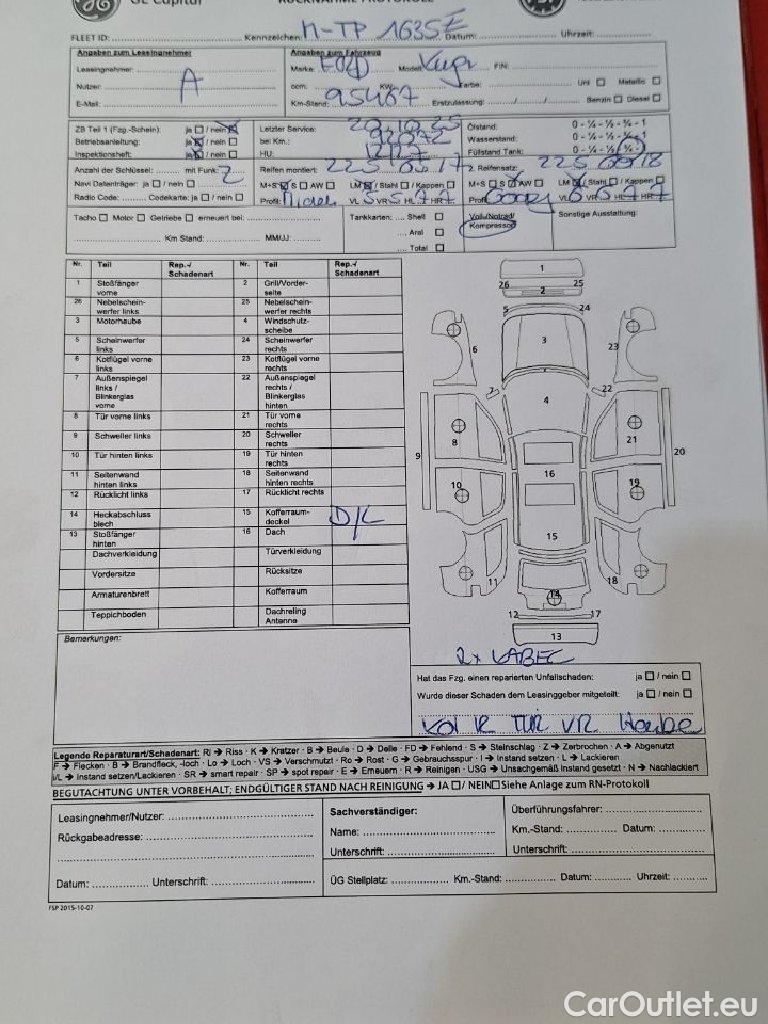 GE Capital RÜCKNAHME PROTOKOLL
FLEET ID: Kennzeichen: M-TP 1635E Datum: Uhrzeit:
Angaben zum Leasingnehmer
Leasingnehmer:
Nutzer: A
E-Mail:
Angaben zum Fahrzeug
Marke: FORD Modell: Kuga FIN:
ccm: KW: Farbe: Uni Metallic
Km-Stand: 95487 Erstzulassung: Benzin Diesel
ZB Teil 1 (Fzg.-Schein): ja / nein
Betriebsanleitung: ja / nein
Inspektionsheft: ja / nein
Letzter Service: 20.10.25
bei Km.: 92072
HU: 12/27
Ölstand: 0 - ¼ - ½ - ¾ - 1
Wasserstand: 0 - ¼ - ½ - ¾ - 1
Füllstand Tank: 0 - ¼ - ½ - ¾ - 1
Anzahl der Schlüssel: mit Funk: 2
Navi Datenträger: ja / nein
Radio Code: Codekarte: ja / nein
Reifen montiert: 225 65 17
M+S S AW LM / Stahl / Kappen
Profil: VL 5 VR 5 HL 7 HR 7
2 Reifensatz: 225 18
M+S S AW LM / Stahl / Kappen
Profil VL VR 5 HL 7 HR 7
Tacho Motor Getriebe erneuert bei:
Km Stand: MM/JJ:
Tankkarten: Shell
Aral
Total
Voll-/Notrad/
Kompressor
Sonstige Ausstattung:
Nr. Teil Rep.-/ Schadenart Nr. Teil Rep.-/ Schadenart
1 Stoßfänger vorne 2 Grill/Vorder-seite
26 Nebelschein-werfer links 25 Nebelschein-werfer rechts
3 Motorhaube 4 Windschutz-scheibe
5 Scheinwerfer links 24 Scheinwerfer rechts
6 Kotflügel vorne links 23 Kotflügel vorne rechts
7 Außenspiegel links / Blinkerglas vorne 22 Außenspiegel rechts / Blinkerglas hinten
8 Tür vorne links 21 Tür vorne rechts
9 Schweller links 20 Schweller rechts
10 Tür hinten links 19 Tür hinten rechts
11 Seitenwand hinten links 18 Seitenwand hinten rechts
12 Rücklicht links 17 Rücklicht rechts
14 Heckabschluss blech 15 Kofferraum-deckel D/L
13 Stoßfänger hinten 16 Dach
Dachverkleidung Türverkleidung
Vordersitze Rücksitze
Armaturenbrett Kofferraum
Teppichboden Dachreling Antenne
1
26 2 25
5 24
6 3 23
7 22
4
8 21
9 20
16
10 19
15
11 18
14
12 17
13
2x KABEL
Bemerkungen:
Hat das Fzg. einen reparierten Unfallschaden: ja / nein
Wurde dieser Schaden dem Leasinggeber mitgeteilt: ja / nein
TÜR VR Haube
Legende Reparaturart/Schadenart: RI → Riss · K → Kratzer · B → Beule · D → Delle · FD → Fehlend · S → Steinschlag · Z → Zerbrochen · A → Abgenutzt
F → Flecken · B → Brandfleck, -loch · Lo → Loch · VS → Verschmutzt · Ro → Rost · G → Gebrauchsspur · I → Instand setzen · L → Lackieren
I/L → Instand setzen/Lackieren · SR → smart repair · SP → spot repair · E → Erneuern · R → Reinigen · USG → Unsachgemäß instand gesetzt · N → Nachlackiert
BEGUTACHTUNG UNTER VORBEHALT; ENDGÜLTIGER STAND NACH REINIGUNG → JA / NEIN Siehe Anlage zum RN-Protokoll
Leasingnehmer/Nutzer:
Rückgabeadresse:
Datum: Unterschrift:
Sachverständiger:
Name:
Unterschrift:
Überführungsfahrer:
Km.-Stand: Datum:
Unterschrift:
ÜG Stellplatz: Km.-Stand: Datum: Uhrzeit:
FSP 2015-10-07
CarOutlet.eu